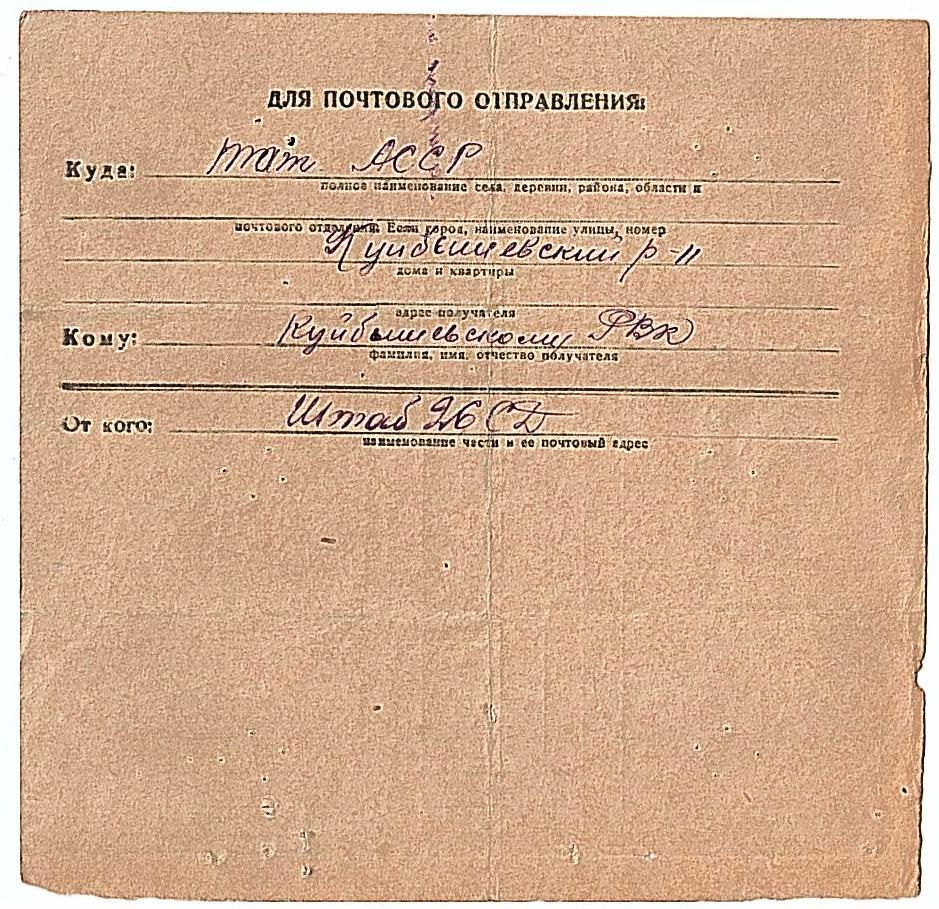 ДЛЯ ПОЧТОВОГО ОТПРАВЛЕНИЯ:
Куда: тат АССР
полное наименование села, деревни, района, области и
почтового отделения. Если город, наименование улицы, номер
Куйбышевский р-н
дома и квартиры
адрес получателя
Кому: Куйбышевскому РВК
фамилия, имя, отчество получателя
От кого: Штаб 26 СД
наименование части и ее почтовый адрес